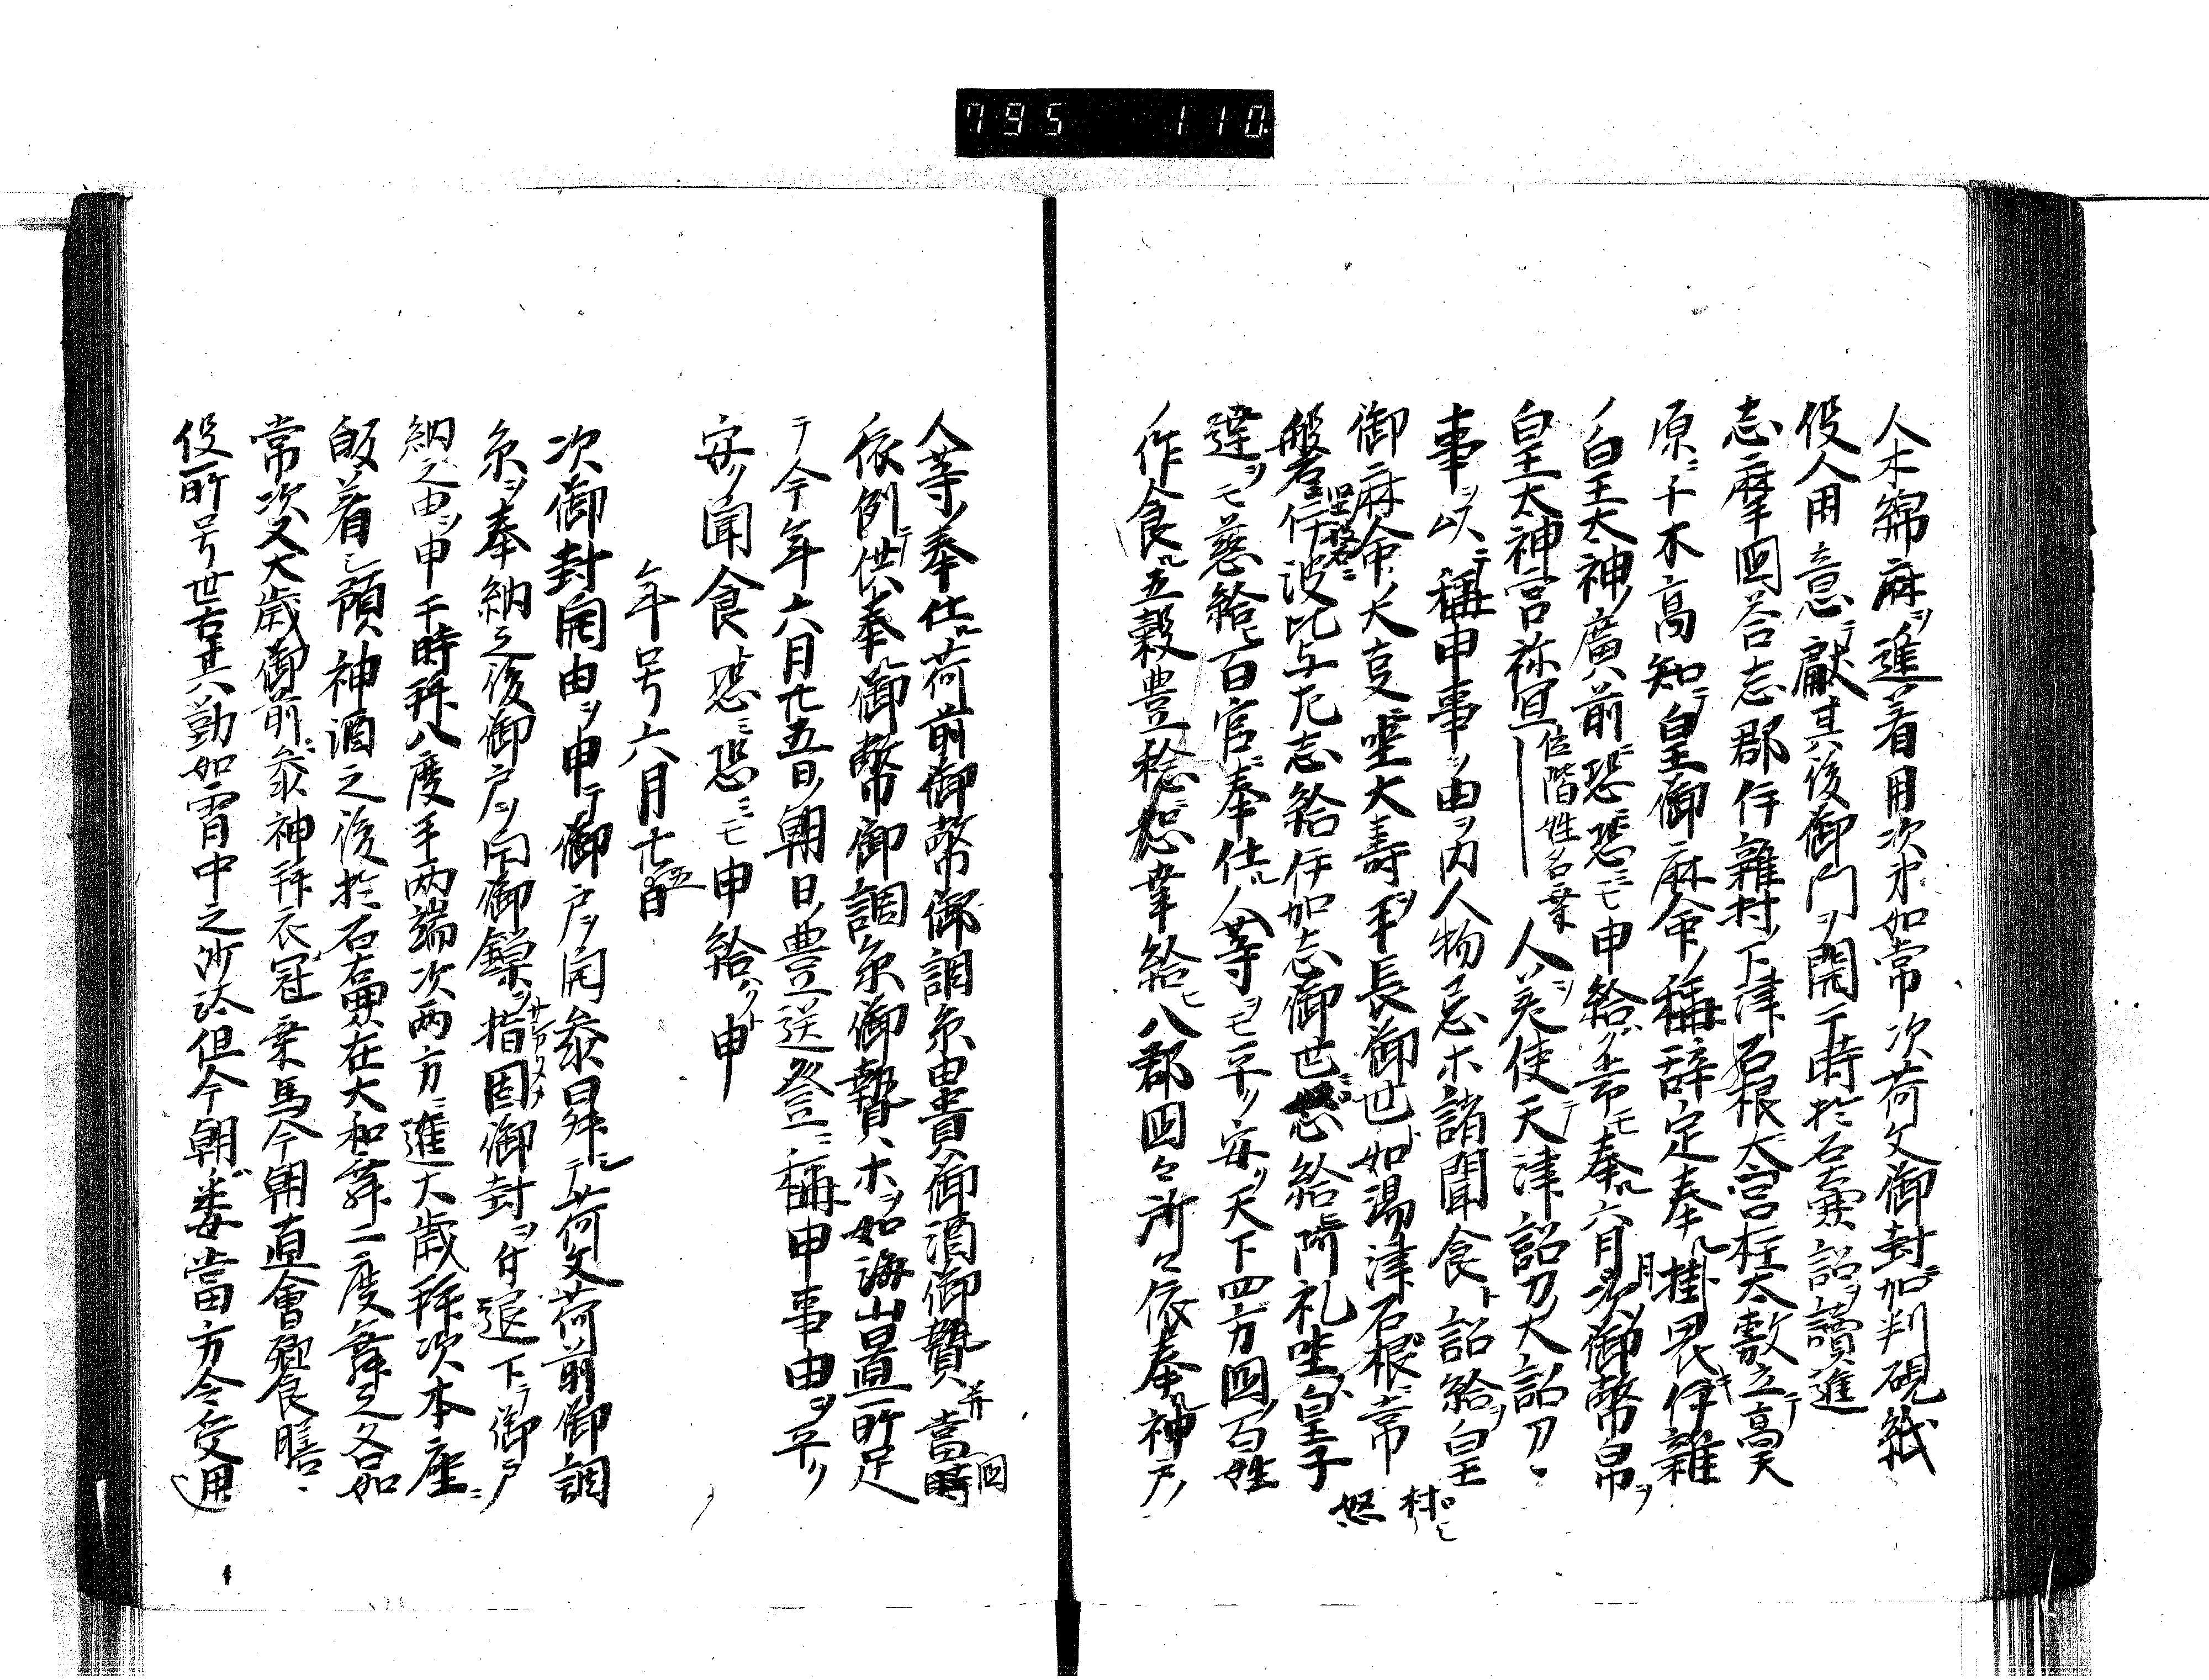 795 110
人木綿麻ヲ進着用次第如常次荷文御封加判硯紙
役人用意テ獻其後御門ヲ開于時於石壷詔ヲ讀進
志摩國荅志郡伊雜村ノ下津石根大宮柱太敷立テ高天
原ニ千木高知テ皇御麻命ノ稱辞定奉ル掛畏キ伊雜
ノ皇太神ノ廣前ニ恐恐モ申給ク常モ奉ル六月月次ノ御幣帛ヲ
皇太神宮祢宜 位階姓名葉 人ヲ差使テ天津詔刀大詔刀
事ヲ以テ稱申事ノ由ヲ内人物忌ホ諸聞食ト詔給ヲ皇
御麻命ノ大 坐大壽ヲ手長御世如湯津石根ニ常
磐 伊波比与 志給伊加志御世 給 礼坐皇子
達ヲモ慈給ヒ百官ニ奉仕ル人等ヲモ平ク安ク天下四方國ノ百姓
作食ル五穀豊稔ニ恤幸給ヒ八郡國々所々依奉ル神戸ノ
村 怒
人等ノ奉仕ル荷前御幣御調糸由貴御酒御贄并當時 國
依例テ供奉ル御幣御調糸御贄ホヲ如海山置所足
テ今年六月廿五日ノ朝日豊送登ニ稱申事由ヲ平ク
安ク聞食恐ミ恐ミモ申給ハクト申
年号六月廿五日
次御封開由ヲ申テ御戸ヲ開参昇テ荷文荷前御調
糸ヲ奉納之後御戸ヲ閇御鏁ヲ指固御封ヲ付退下テ御戸
納之由ヲ申于時拜八度手両端次両方ニ進大歳拜次本座ニ
皈着シ預神酒之後於石壷在大和舞二度舞之各如
常次又大歳御前ニ参神拜衣冠乗馬今朝直會饗食膳
役所号世古其勤如宵中之沙汰但今朝 當方令受用